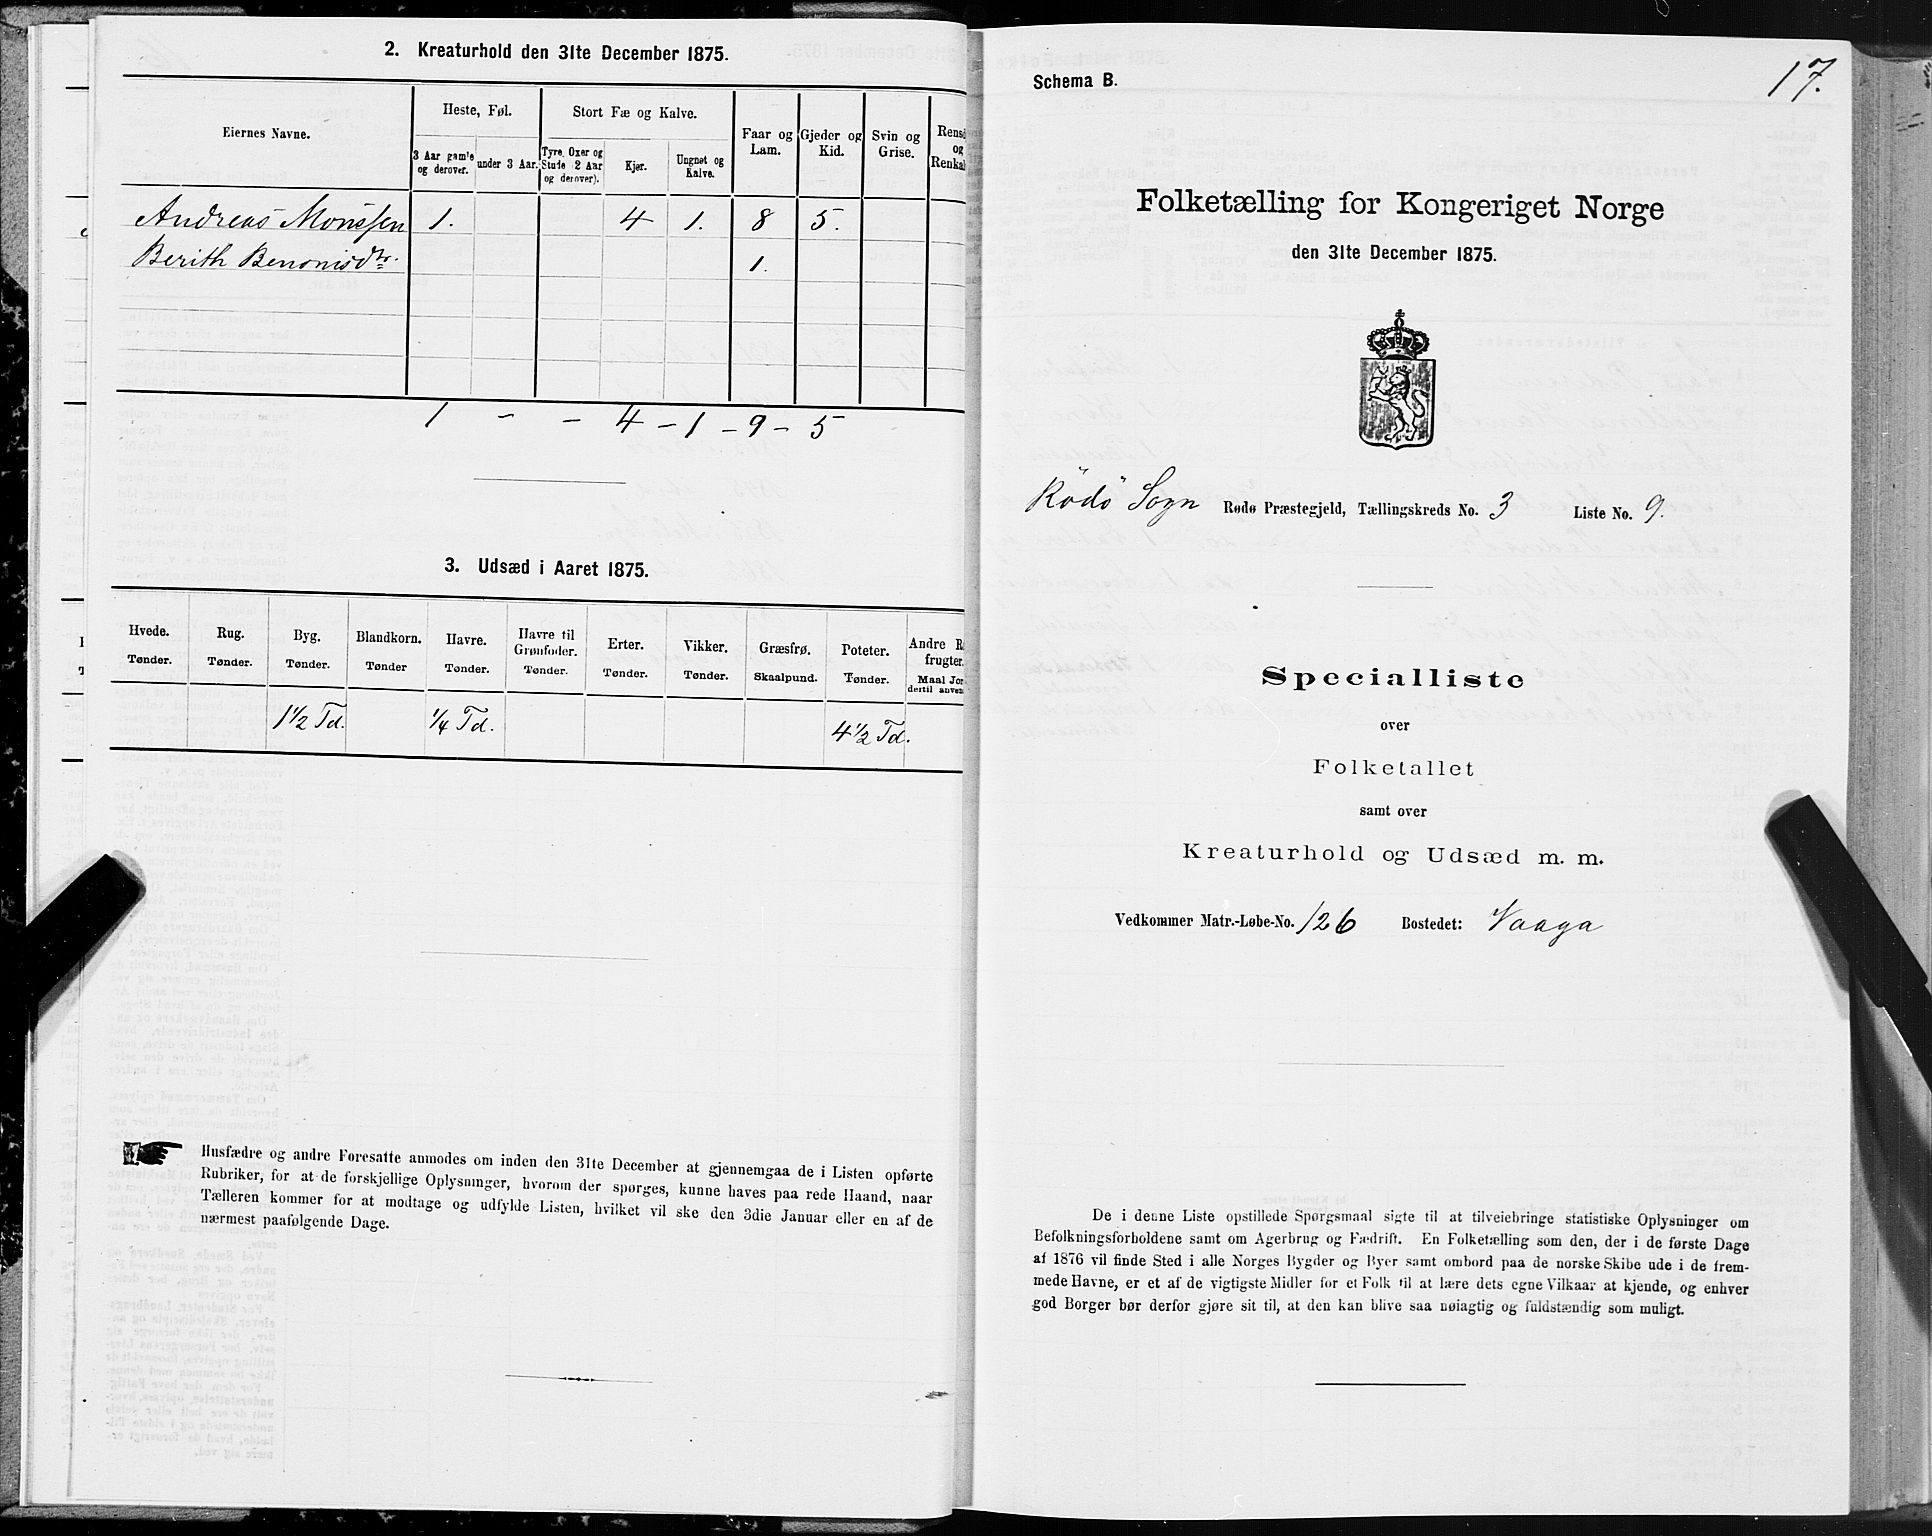 2. Kreaturhold den 31te December 1875.
Eiernes Navne.
Heste, Føl.
Stort Fæ og Kalve.
Faar og Lam.
Gjeder og Kid.
Svin og Grise.
Rensd
og
Renkal
3 Aar gamle og derover.
under 3 Aar.
Tyre, Oxer og Stude (2 Aar og derover).
Kjør.
Ungnøt og Kalve.
Andreas Monssen 1. 4 1. 8 5.
Berith Benonisdtr. 1.
1 - - 4 - 1 - 9 - 5
3. Udsæd i Aaret 1875.
Hvede. Rug. Byg. Blandkorn. Havre. Havre til Grønfoder. Erter. Vikker. Græsfrø. Poteter. Andre R
frugter.
Tønder. Tønder. Tønder. Tønder Tønder. Tønder. Tønder. Tønder. Skaalpund. Tønder. Maal Jor
dertil anven
1 1/2 Td. 1/4 Td. 4 1/2 Td.
Husfædre og andre Foresatte anmodes om inden den 31te December at gjennemgaa de i Listen opførte
Rubriker, for at de forskjellige Oplysninger, hvorom der spørges, kunne haves paa rede Haand, naar
Tælleren kommer for at modtage og udfylde Listen, hvilket vil ske den 3die Januar eller en af de
nærmest paafølgende Dage.
17.
Schema B.
Folketælling for Kongeriget Norge
den 31te December 1875.
Rödö Sogn Rødø Præstegjeld, Tællingskreds No. 3 Liste No. 9.
Specialliste
over
Folketallet
samt over
Kreaturhold og Udsæd m. m.
Vedkommer Matr.-Løbe-No. 126 Bostedet: Vaaga
De i denne Liste opstillede Spørgsmaal sigte til at tilveiebringe statistiske Oplysninger om
Befolkningsforholdene samt om Agerbrug og Fædrift. En Folketælling som den, der i de første Dage
af 1876 vil finde Sted i alle Norges Bygder og Byer samt ombord paa de norske Skibe ude i de frem-
mede Havne, er et af de vigtigste Midler for et Folk til at lære dets egne Vilkaar at kjende, og enhver
god Borger bør derfor gjøre sit til, at den kan blive saa nøiagtig og fuldstændig som muligt.